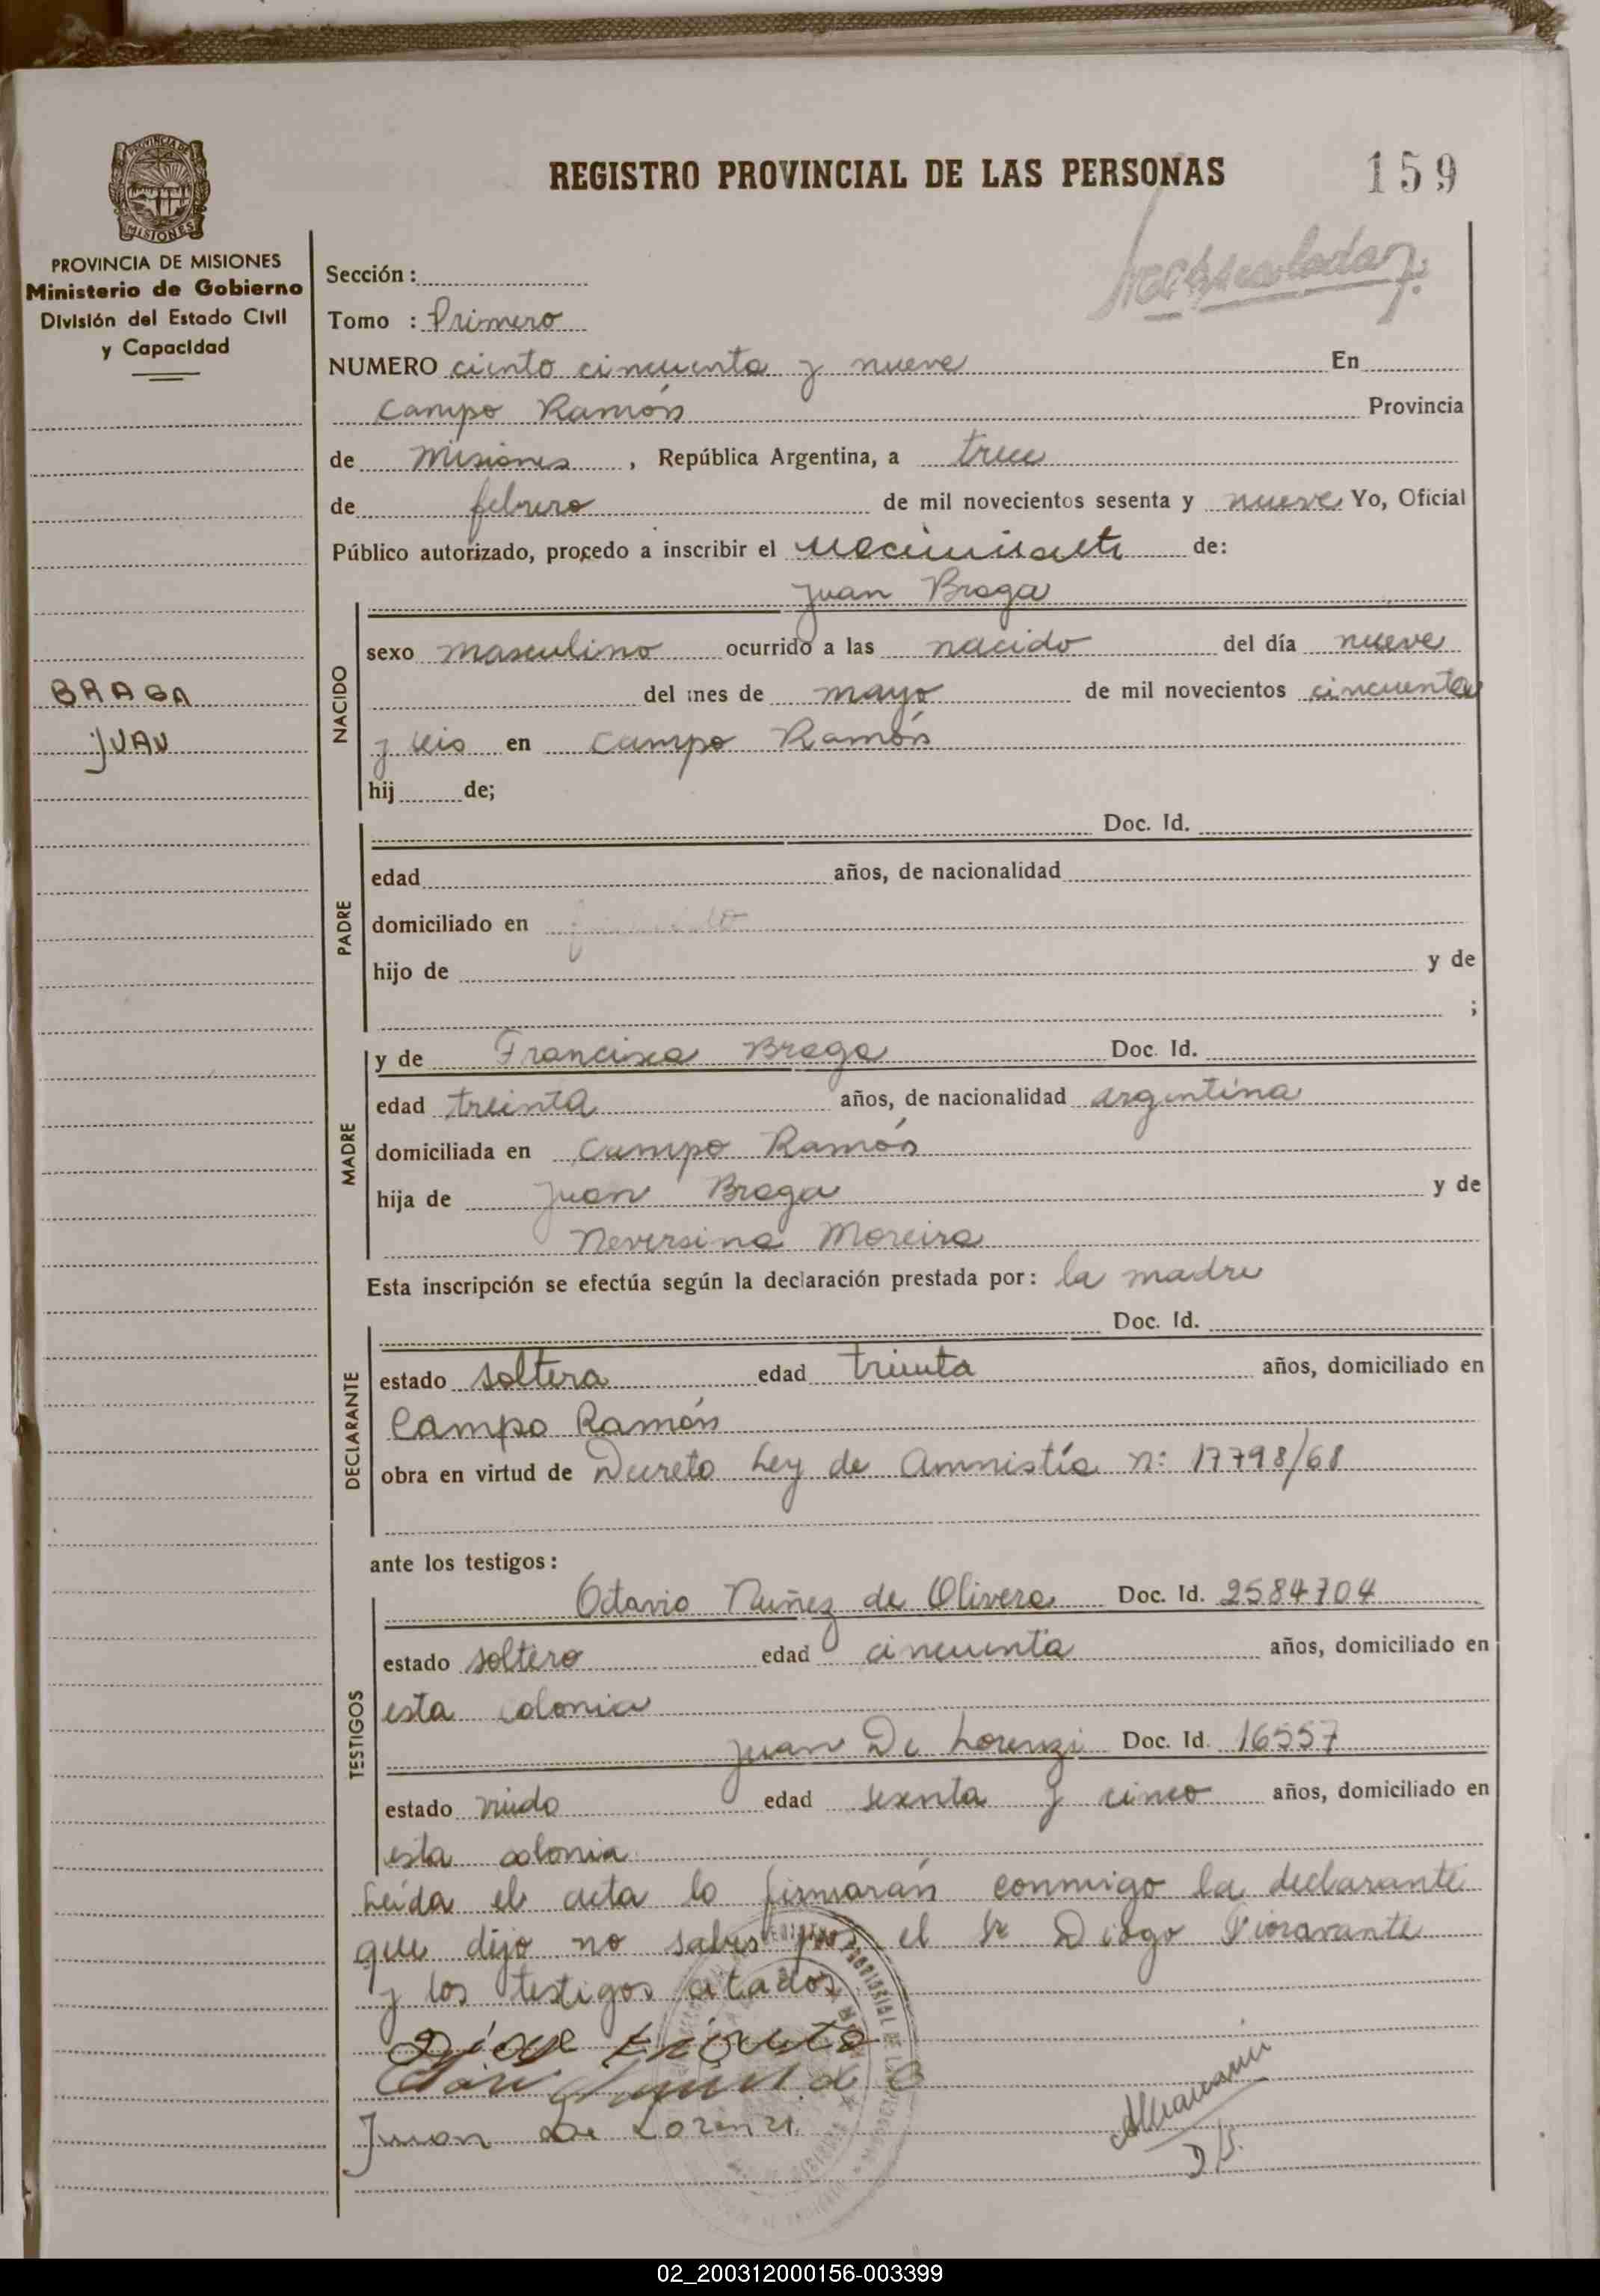 REGISTRO PROVINCIAL DE LAS PERSONAS
159
PROVINCIA DE MISIONES
Ministerio de Gobierno
División del Estado Civil
y Capacidad
BRAGA
JUAN
Sección:
Tomo : Primero
NUMERO ciento cincuenta y nueve En
Campo Ramón Provincia
de Misiones, República Argentina, a trece
de febrero de mil novecientos sesenta y nueve Yo, Oficial
Público autorizado, procedo a inscribir el nacimiento de:
Juan Braga
NACIDO
sexo masculino ocurrido a las nacido del día nueve
del mes de mayo de mil novecientos cincuenta
y seis en Campo Ramón
hij de;
PADRE
Doc. Id.
edad años, de nacionalidad
domiciliado en
hijo de y de
;
MADRE
y de Francisca Braga Doc. Id.
edad treinta años, de nacionalidad argentina
domiciliada en Campo Ramón
hija de Juan Braga y de
Neversina Moreira
Esta inscripción se efectúa según la declaración prestada por: la madre
DECLARANTE
Doc. Id.
estado soltera edad treinta años, domiciliado en
Campo Ramón
obra en virtud de Decreto Ley de Amnistía n: 17798/68
ante los testigos:
TESTIGOS
Octavio Nuñez de Olivera Doc. Id. 2584704
estado soltero edad cincuenta años, domiciliado en
esta colonia
Juan De Lorenzi Doc. Id. 16557
estado viudo edad sesenta y cinco años, domiciliado en
esta colonia
Leída el acta lo firmarán conmigo la declarante
que dijo no saber por el Sr Diogo Fioravante
y los testigos citados
Juan De Lorenzi
02_200312000156-003399